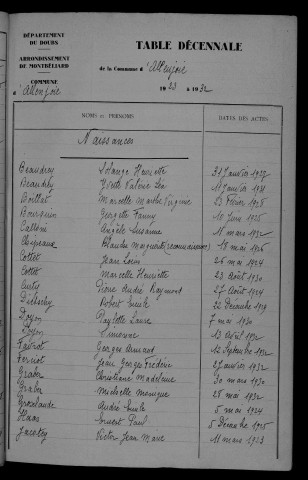 DÉPARTEMENT
DU DOUBS
ARRONDISSEMENT
DE MONTBÉLIARD
COMMUNE
d'Allenjoie
TABLE DÉCENNALE
de la Commune d'Allenjoie
1923 à 1932
NOMS ET PRÉNOMS
DATES DES ACTES
Naissances
Beaudrey Solange Henriette 31 Janvier 1927
Beaudrey Yvette Valérie Léa 11 Janvier 1931
Boillat Marcelle Marthe Virginie 23 Février 1925
Bourquin Georgette Fanny 10 Juin 1925
Angèle Susanna 11 mars 1932
Blanche Marguerite (reconnaissance) 18 mai 1926
Cottet Jean Louis 26 mai 1924
Cottet Marcelle Henriette 23 Août 1930
Pierre André Raymond 27 Août 1924
Robert Emile 22 Décembre 1929
Doyon Paulette Laure 7 mai 1930
Doyon Simonne 13 Août 1932
Faivrot Georges Armand 12 Septembre 1932
Ferciot Jean Georges Frédéric 27 Janvier 1932
Graber Christiane Madeleine 30 mars 1930
Graber Michelle Monique 28 mai 1932
Groslaude André Emile 5 mai 1924
Haas Ernest Paul 5 Décembre 1925
Jacotey Victor Jean Marc 11 mars 1923